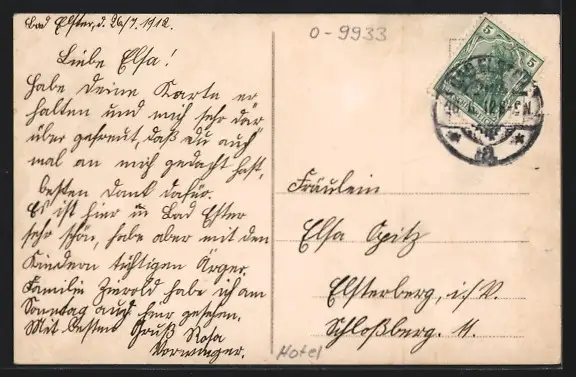 Bad Elster, d. 26/7. 1912.
Liebe Elsa!
Habe Deine Karte er
halten und mich sehr dar
über gefreut, daß Du auch
mal an mich gedacht hast,
besten Dank dafür.
Es ist hier in Bad Elster
sehr schön, habe aber mit den
Kindern tüchtigen Ärger.
Familie habe ich am
Sonntag auch hier gesehen.
Mit besten Gruß Rosa
0-9933
5
5
Fräulein
Elsa Opitz
Elsterberg, i/V.
Schloßberg. 11.
Hotel